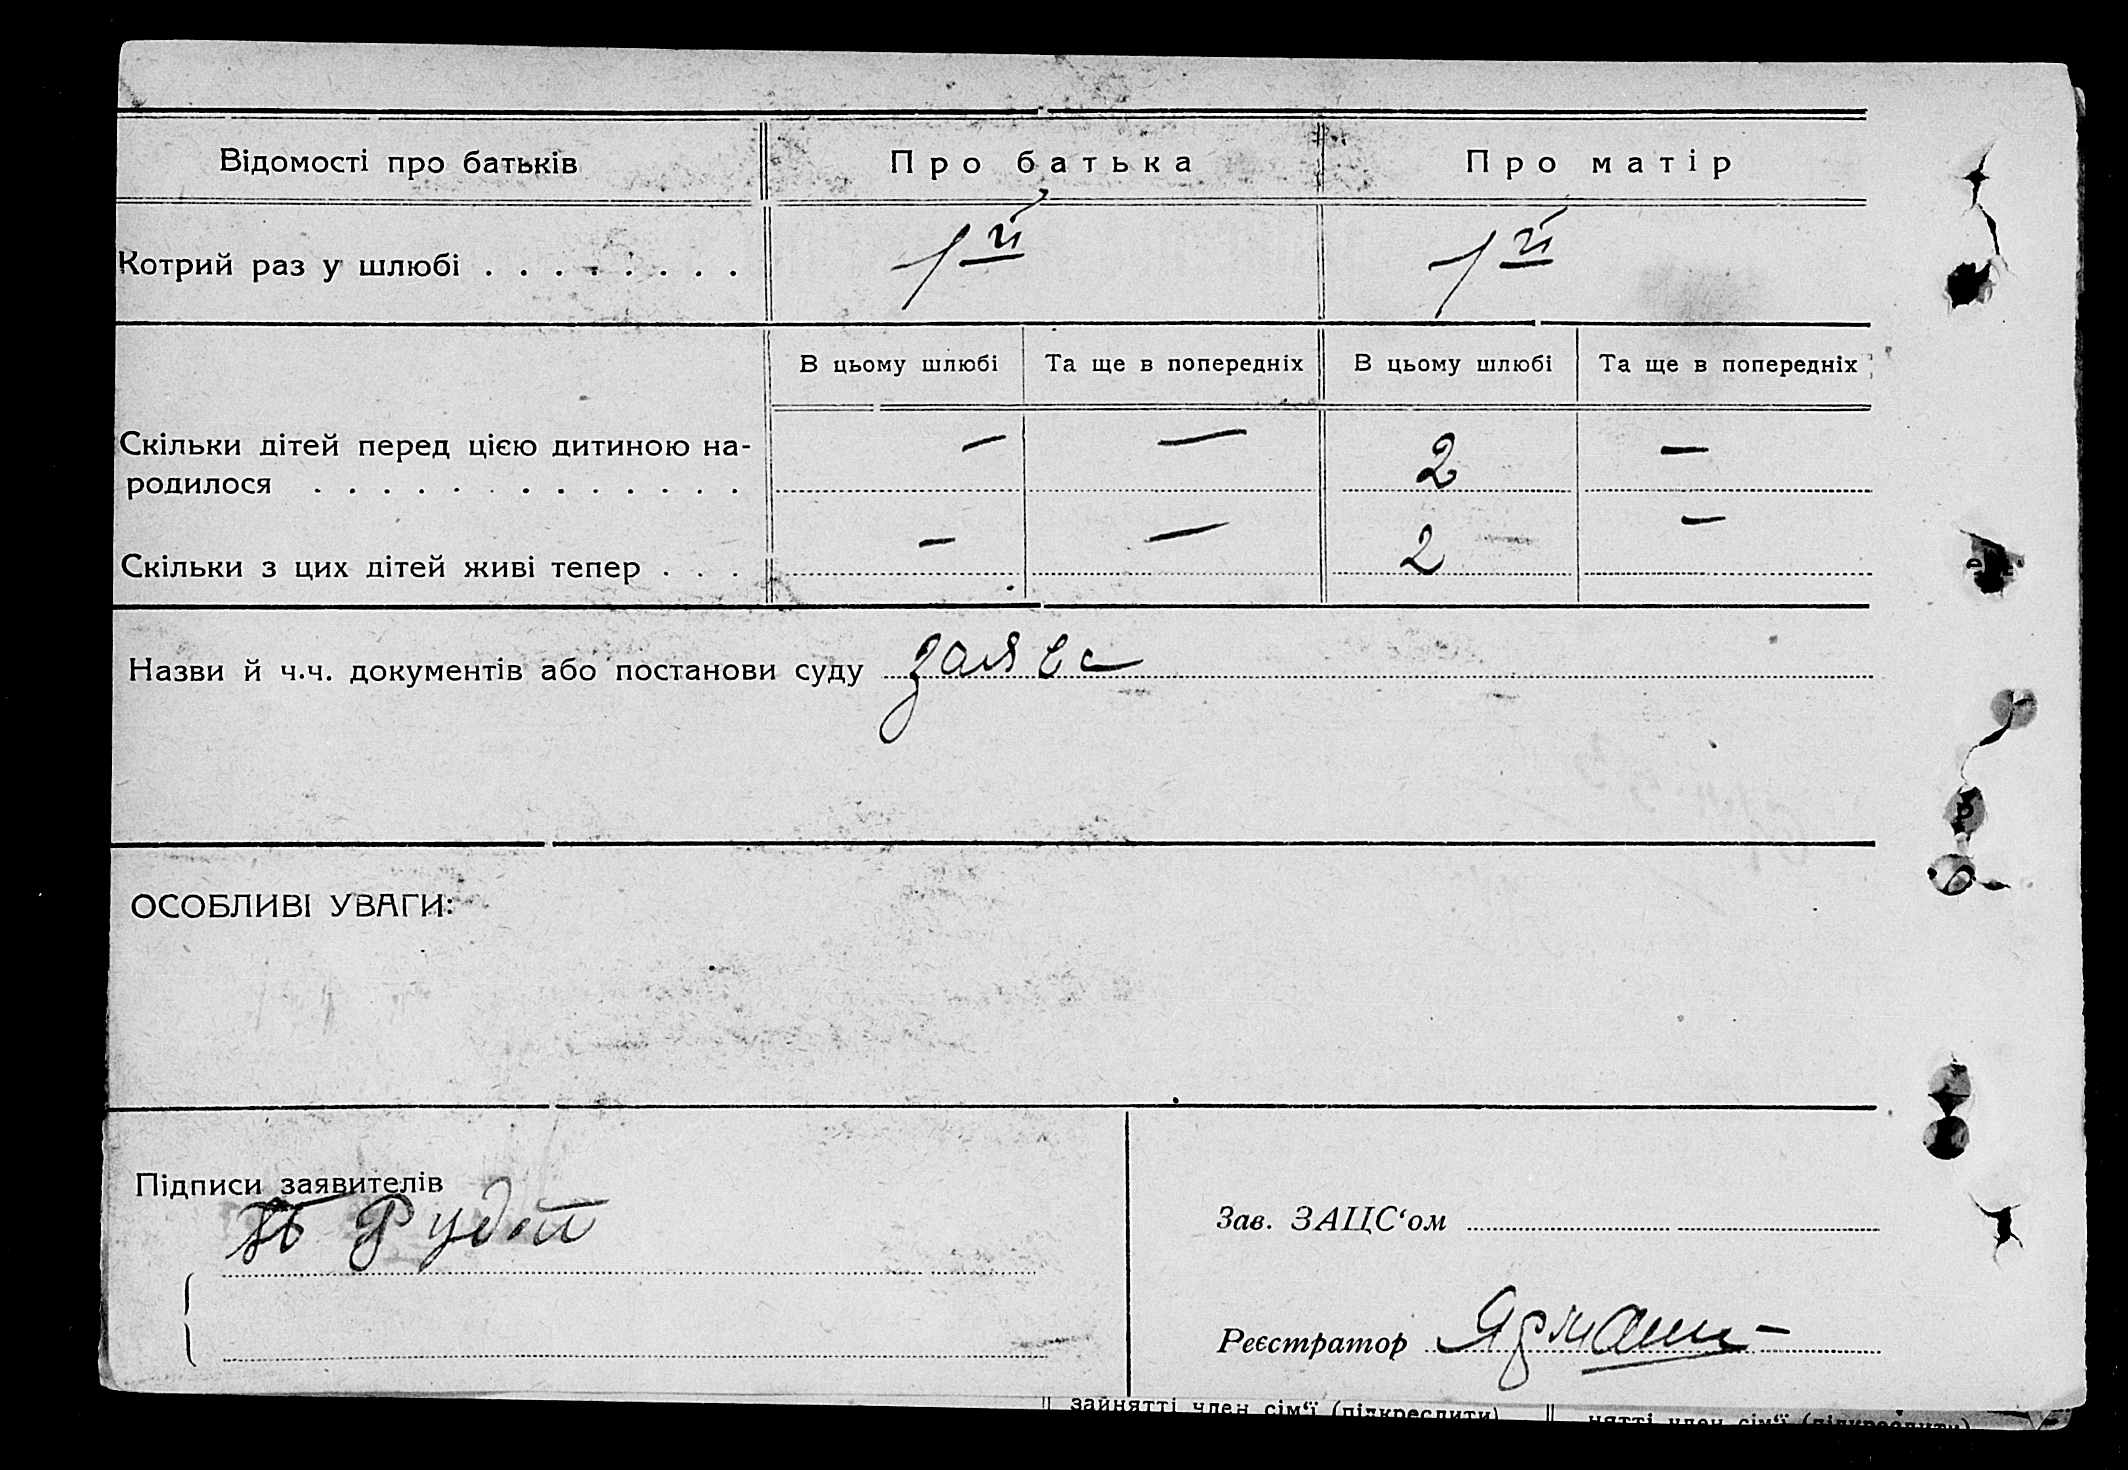 Відомості про батьків Про батька Про матір
Котрий раз у шлюбі . . . . . . . . 1й 1й
В цьому шлюбі Та ще в попередніх В цьому шлюбі Та ще в попередніх
Скільки дітей перед цією дитиною на- — — 2 —
родилося . . . . . . . . . . . . .
Скільки з цих дітей живі тепер . . . — — 2 —
Назви й ч.ч. документів або постанови суду заява
ОСОБЛИВІ УВАГИ:
Підписи заявителів
Рудой
Зав. ЗАЦС‘ом
Реєстратор
зайнятті член сім‘ї (підкреслити)
нятті член сім‘ї (підкреслити)